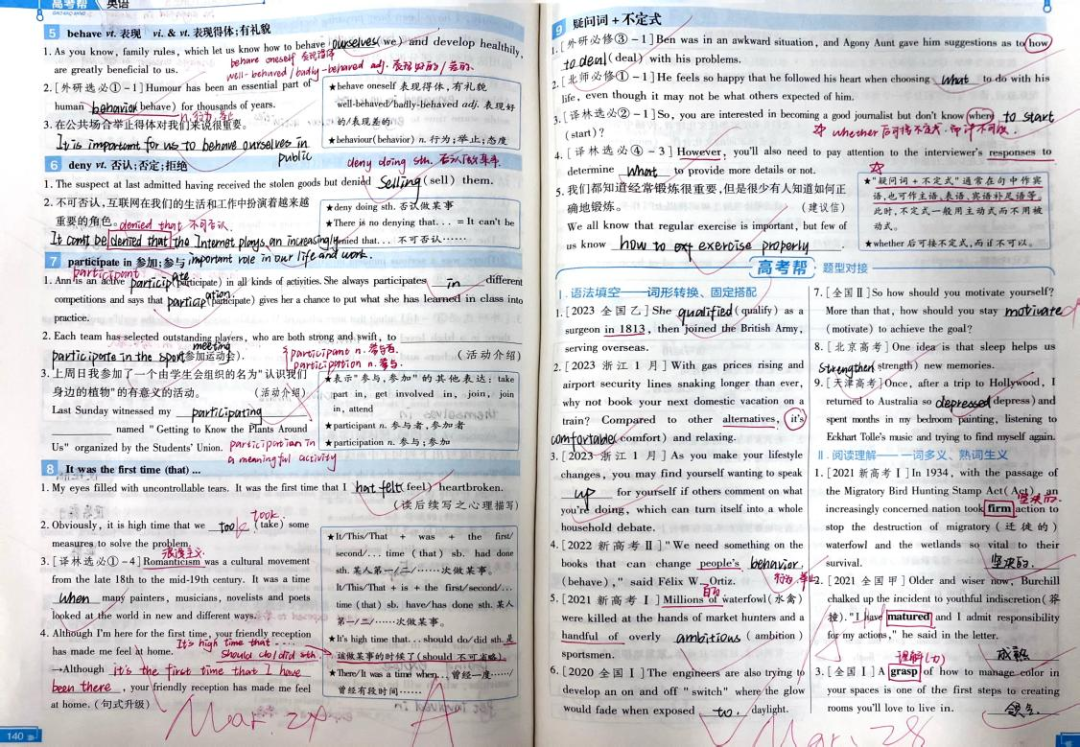 高考帮 英语
5 behave vt. 表现 vi. & vt. 表现得体;有礼貌
1. As you know, family rules, which let us know how to behave ourselves(we) and develop healthily,
behave oneself 表现得体
are greatly beneficial to us.
well-behaved / badly-behaved adj. 表现好的/差的.
2. [外研选必①-1] Humour has been an essential part of
human behavior(behave) for thousands of years.
n. 行为 举止
3. 在公共场合举止得体对我们来说很重要。
It is important for us to behave ourselves in
public
★behave oneself 表现得体,有礼貌
well-behaved/badly-behaved adj. 表现好
的/表现差的
★behaviour(behavior) n. 行为;举止;态度
6 deny vt. 否认;否定;拒绝
deny doing sth. 否认做某事
1. The suspect at last admitted having received the stolen goods but denied Selling(sell) them.
2. 不可否认,互联网在我们的生活和工作中扮演着越来越
重要的角色。
denied that 不可否认
It can't be denied that the Internet plays an increasingly
important role in our life and work.
★deny doing sth. 否认做某事
★There is no denying that... = It can't be
denied that... 不可否认……
7 participate in 参加;参与
participant
1. Ann is an active participate(participate) in all kinds of activities. She always participates in different
competitions and says that participation(participate) gives her a chance to put what she has learned in class into
practice.
2. Each team has selected outstanding players, who are both strong and swift, to
meeting
participate in the sport(参加运动会). (活动介绍)
participant n. 参与者.
participation n. 参与.
3. 上周日我参加了一个由学生会组织的名为"认识我们
身边的植物"的有意义的活动。 (活动介绍)
Last Sunday witnessed my participating
named "Getting to Know the Plants Around
Us" organized by the Students' Union.
participation in
a meaningful activity
★表示"参与,参加"的其他表达:take
part in, get involved in, join, join
in, attend
★participant n. 参与者,参加者
★participation n. 参与;参加
8 It was the first time (that) ...
1. My eyes filled with uncontrollable tears. It was the first time that I hat felt(feel) heartbroken.
(读后续写之心理描写)
took
2. Obviously, it is high time that we took (take) some
measures to solve the problem.
浪漫主义
3. [译林选必①-4] Romanticism was a cultural movement
from the late 18th to the mid-19th century. It was a time
when many painters, musicians, novelists and poets
looked at the world in new and different ways.
4. Although I'm here for the first time, your friendly reception
has made me feel at home.
It's high time that ...
should do/did sth.
→Although it's the first time that I have
been there, your friendly reception has made me feel
at home. (句式升级)
★It/This/That + was + the first/
second/... time (that) sb. had done
sth. 某人第一/二/……次做某事。
It/This/That + is + the first/second/...
time (that) sb. have/has done sth. 某人
第一/二/……次做某事。
★It's high time that... should do/did sth. 是
该做某事的时候了(should 不可省略)。
★There/It was a time when... 曾经一度……/
曾经有段时间……
Mar. 24 A
140
9 疑问词+不定式
1. [外研必修③-1] Ben was in an awkward situation, and Agony Aunt gave him suggestions as to how
to deal(deal) with his problems.
2. [北师必修①-1] He feels so happy that he followed his heart when choosing what to do with his
life, even though it may not be what others expected of him.
3. [译林选必②-1] So, you are interested in becoming a good journalist but don't know where to start
(start)?
whether 后可接不定式, 而 if 不可以.
4. [译林选必④-3] However, you'll also need to pay attention to the interviewer's responses to
determine what to provide more details or not.
5. 我们都知道经常锻炼很重要,但是很少有人知道如何正
确地锻炼。 (建议信)
We all know that regular exercise is important, but few of
us know how to exercise properly.
★"疑问词+不定式"通常在句中作宾
语,也可作主语、表语、宾语补足语等,
此时,不定式一般用主动式而不用被
动式。
★whether 后可接不定式,而 if 不可以。
高考帮 题型对接
Ⅰ. 语法填空——词形转换、固定搭配
1. [2023 全国乙] She qualified(qualify) as a
surgeon in 1813, then joined the British Army,
serving overseas.
2. [2023 浙江1月] With gas prices rising and
airport security lines snaking longer than ever,
why not book your next domestic vacation on a
train? Compared to other alternatives, it's
comfortable(comfort) and relaxing.
3. [2023 浙江1月] As you make your lifestyle
changes, you may find yourself wanting to speak
up for yourself if others comment on what
you're doing, which can turn itself into a whole
household debate.
4. [2022 新高考Ⅱ] "We need something on the
books that can change people's behavior
(behave)," said Félix W. Ortiz.
行为, 举止
5. [2021 新高考Ⅰ] Millions of waterfowl(水禽)
百万
were killed at the hands of market hunters and a
handful of overly ambitious (ambition)
sportsmen.
6. [2020 全国Ⅰ] The engineers are also trying to
develop an on and off "switch" where the glow
would fade when exposed to daylight.
7. [全国Ⅱ] So how should you motivate yourself?
More than that, how should you stay motivated
(motivate) to achieve the goal?
8. [北京高考] One idea is that sleep helps us
strengthen(strength) new memories.
9. [天津高考] Once, after a trip to Hollywood, I
returned to Australia so depressed(depress) and
spent months in my bedroom painting, listening to
Eckhart Tolle's music and trying to find myself again.
Ⅱ. 阅读理解——一词多义、熟词生义
1. [2021 新高考Ⅰ] In 1934, with the passage of
the Migratory Bird Hunting Stamp Act(Act), an
坚决的.
increasingly concerned nation took firm action to
stop the destruction of migratory (迁徙的)
waterfowl and the wetlands so vital to their
survival. 坚决的.
2. [2021 全国甲] Older and wiser now, Burchill
chalked up the incident to youthful indiscretion(莽
撞). "I have matured and I admit responsibility
for my actions," he said in the letter.
成熟
理解(力)
3. [全国Ⅰ] A grasp of how to manage color in
your spaces is one of the first steps to creating
rooms you'll love to live in. 领会.
Mar. 28